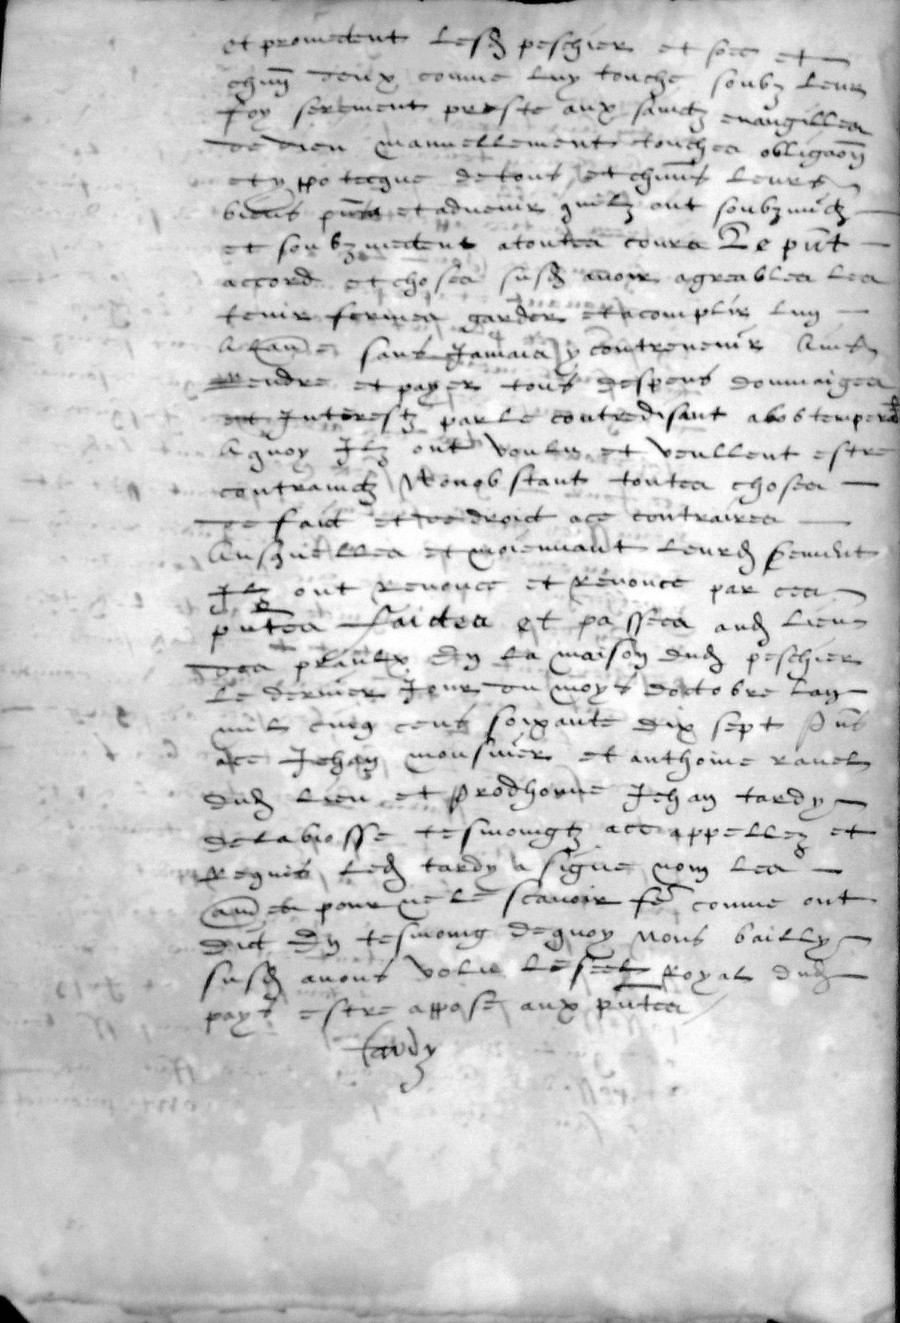 et promectent lesd peschier et soe et
chun deux comme luy touche soubz leur
foy serement preste aux sainctz evangilles
de dieu manuellement touches obligaon
et yppotecque de tous et chuns leurs
biens pnts et advenir quilz ont soubzmictz
et soubzmectent a toutes cours Le pnt
accord et choses susd avoir agreables les
tenir fermes garder et acomplir lun
a lau sans Jamais y contrevenir Ains
Rendre et payer tous despens dommaiges
et Interestz par le contredisant a obtemperer
A quoy Ilz ont voulu et veullent estre
contrainctz Nonobstant toutes choses
de faict et de droict a ce contraires
Ausquelles et moiennant leurd serment
Ilz ont renonce et renonce par ces
pntes faictes et passees aud lieu
des plaulx En la maison dud peschier
le dernier Jour du moys doctobre lan
mil cinq cens soixante dix sept Pns
a ce Jehan mousnier et anthoine ravel
dud lieu et prodhome Jehan tardy
de labiosse tesmoingtz a ce appellez et
Requis led tardy a signe nom les
au pour ne le scavoir fe comme ont
dict En tesmoing dequoy Nous bailly
susd avons volu le seel Royal dud
pays estre appose aux pntes
Tardy